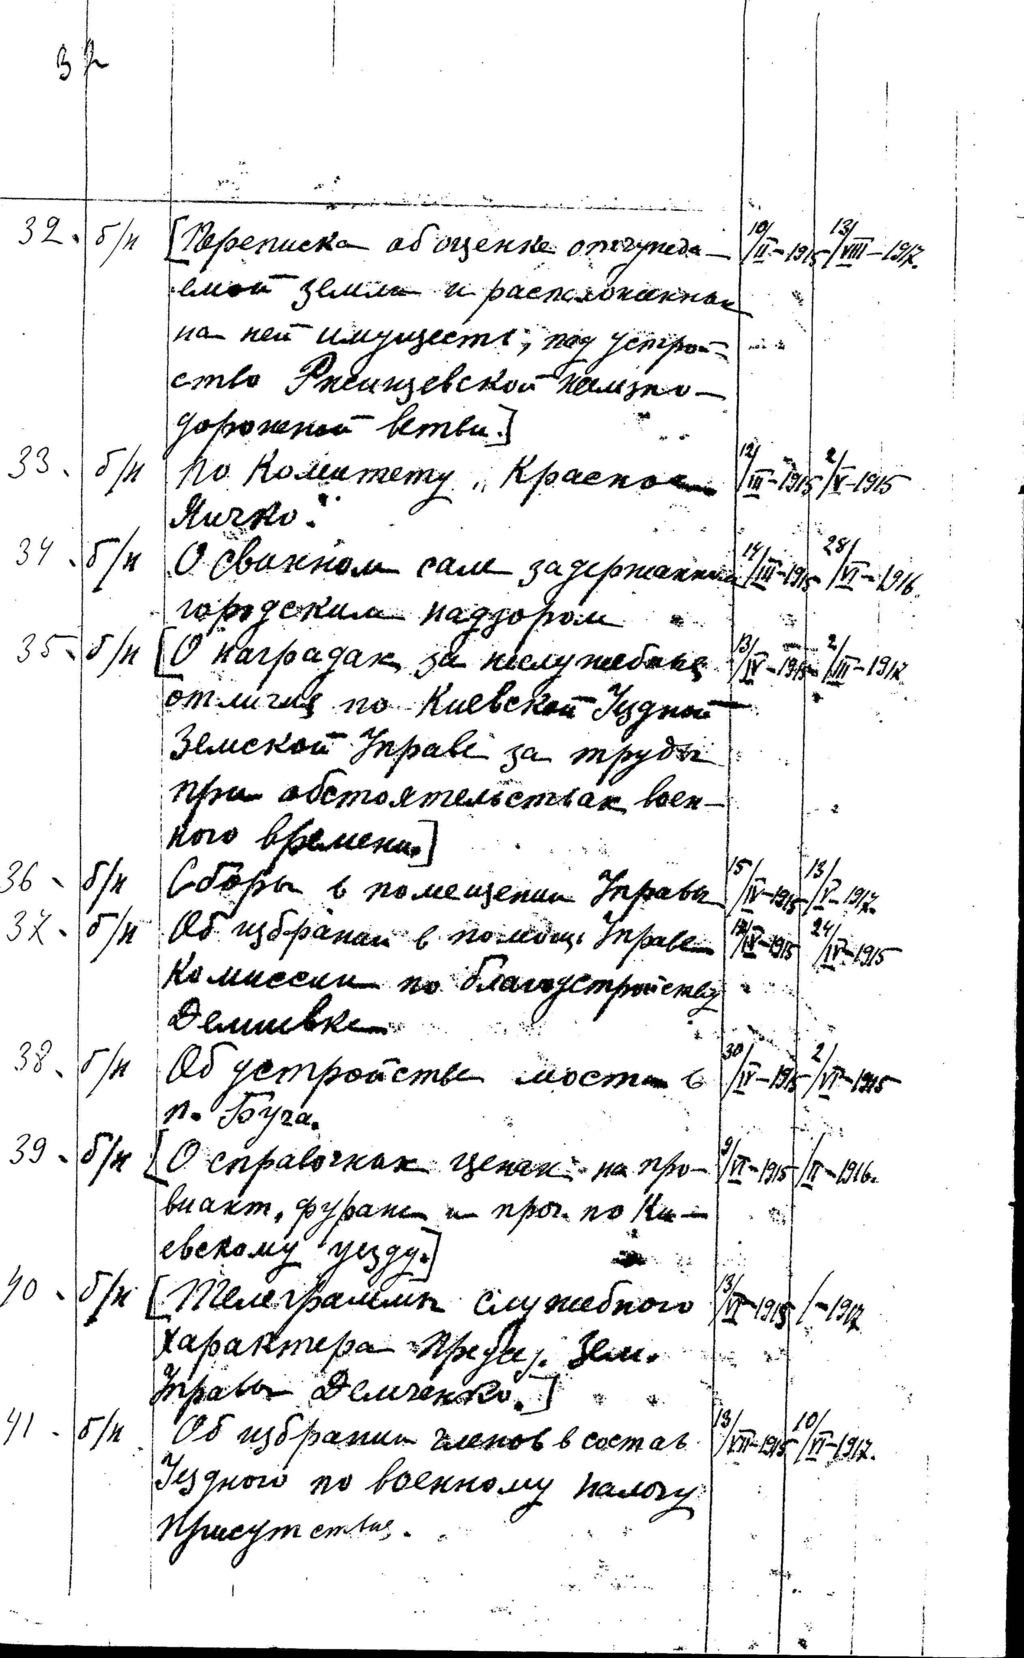 32
32. б/н [Переписка об оценке отчужда- 10/II-1915 13/VIII-1917.
емой земли и расположенных
на ней имуществ, под устрой-
ство Ржищевской железно-
дорожной ветви.]
33. б/н По Комитету „Красное 12/III-1915 2/V-1915
Яичко."
34. б/н О свином сале задержанном 14/III-1915 28/VI-1916.
городским надзором
35. б/н [О наградах за неслужебные 13/IV-1915 2/III-1917
отличия по Киевской Уездной
Земской Управе за труды
при обстоятельствах воен-
ного времени.]
36. б/н Сборы в помещении Управы 15/IV-1915 13/V-1917.
37. б/н Об избрании в помощь Управе 24/IV-1915
Комиссии по благоустройству
Демиевки
38. б/н Об устройстве моста в 30/IV-1915 2/VI-1915
п. Буча.
39. б/н [О справочных ценах на про- 9/VI-1915 /II-1916.
виант, фураж и проч. по Ки-
евскому уезду.]
40. б/н [Телеграммы служебного 13/VI-1915 /-1917
характера Председ. Зем.
Управы Демченко.]
41. б/н Об избрании членов в состав 13/VII-1915 10/VI-1917.
Уездного по военному налогу
Присутствия.